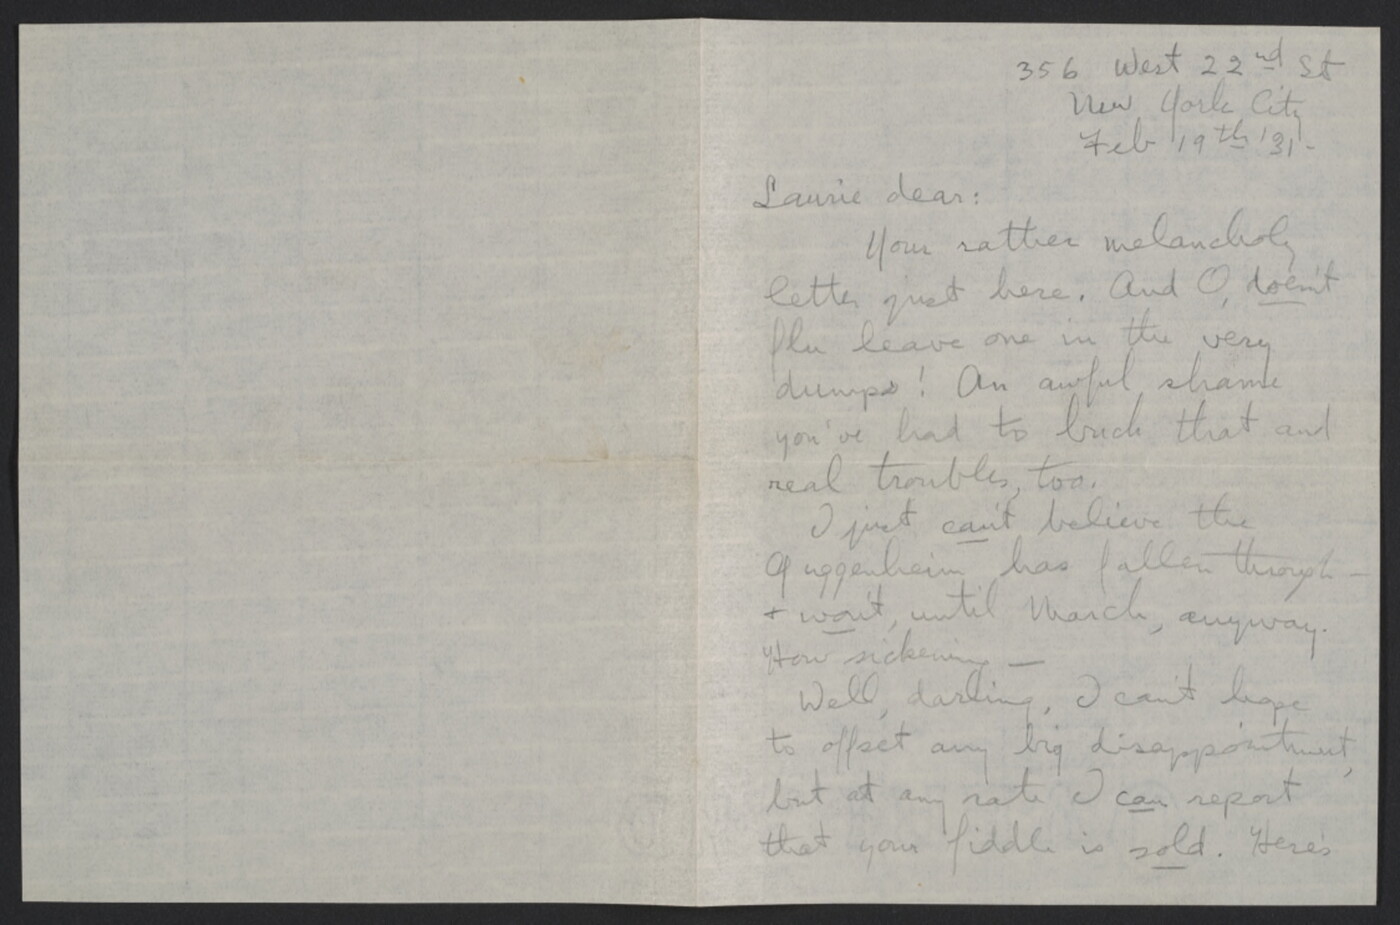 356 West 22nd St
New York City
Feb 19th '31-
Laurie dear:
Your rather melancholy
letter just here. And O, doesn't
flu leave one in the very
dumps! An awful shame
you've had to buck that and
real troubles, too.
I just can't believe the
Guggenheim has fallen through —
+ won't, until March, anyway.
How sickening —
Well, darling, I can't hope
to offset any big disappointment,
but at any rate I can report
that your fiddle is sold. Here's